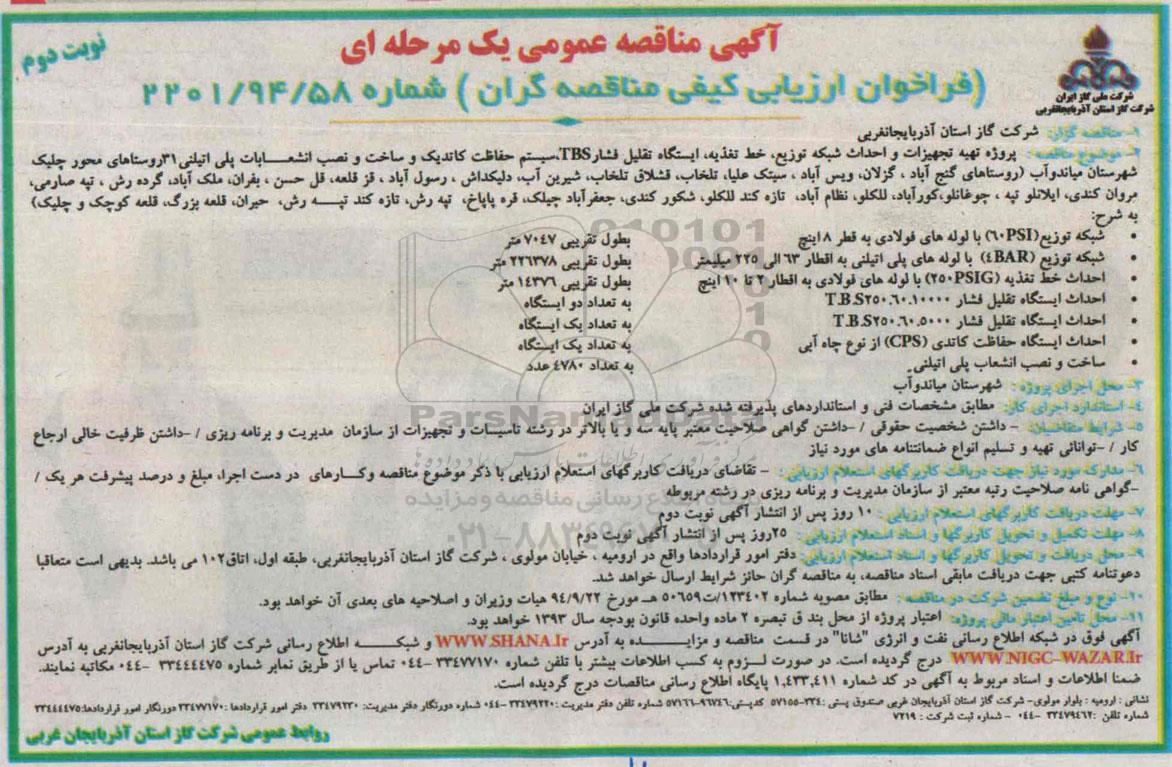 نوبت دوم
آگهی مناقصه عمومی یک مرحله ای
(فراخوان ارزیابی کیفی مناقصه گران ) شماره ۲۲۰۱/۹۴/۵۸
شرکت ملی گاز ایران
شرکت گاز استان آذربایجانغربی
۱- مناقصه گزار: شرکت گاز استان آذربایجانغربی
۲- موضوع مناقصه : پروژه تهیه تجهیزات و احداث شبکه توزیع، خط تغذیه، ایستگاه تقلیل فشارTBS،سیستم حفاظت کاتدیک و ساخت و نصب انشعـــابات پلی اتیلنی۳۱روستاهای محور چلیک
شهرستان میاندوآب (روستاهای گنج آباد ، گزلان، ویس آباد ، سیتک علیا، تلخاب، قشلاق تلخاب، شیرین آب، دلیکداش ، رسول آباد ، قز قلعه، قل حسن ، بفران، ملک آباد، گرده رش ، تپه صارمی،
مروان کندی، ایلانلو تپه ، چوغانلو،کورآباد، للکلو، نظام آباد، تازه کند للکلو، شکور کندی، جعفرآباد چیلک، قره پاپاخ، تپه رش، تازه کند تپـــه رش، حیران، قلعه بزرگ، قلعه کوچک و چلیک)
به شرح:
• شبکه توزیع(۶۰PSI) با لوله های فولادی به قطر ۸ اینچ بطول تقریبی ۷۰۴۷ متر
• شبکه توزیع (۴BAR) با لوله های پلی اتیلنی به اقطار ۶۳ الی ۲۲۵ میلیمتر بطول تقریبی ۲۲۶۳۷۸ متر
• احداث خط تغذیه (۲۵۰PSIG) با لوله های فولادی به اقطار ۲ تا ۱۰ اینچ بطول تقریبی ۱۴۳۷۶ متر
• احداث ایستگاه تقلیل فشار T.B.S۲۵۰.۶۰.۱۰۰۰۰ به تعداد دو ایستگاه
• احداث ایستگاه تقلیل فشار T.B.S۲۵۰.۶۰.۵۰۰۰ به تعداد یک ایستگاه
• احداث ایستگاه حفاظت کاتدی (CPS) از نوع چاه آبی به تعداد یک ایستگاه
• ساخت و نصب انشعاب پلی اتیلنی به تعداد ۴۷۸۰ عدد
۳- محل اجرای پروژه : شهرستان میاندوآب
۴- استاندارد اجرای کار: مطابق مشخصات فنی و استانداردهای پذیرفته شده شرکت ملی گاز ایران
۵- شرایط متقاضیان: - داشتن شخصیت حقوقی / -داشتن گواهی صلاحیت معتبر پایه سه و یا بالاتر در رشته تاسیسات و تجهیزات از سازمان مدیریت و برنامه ریزی / -داشتن ظرفیت خالی ارجاع
کار / -توانائی تهیه و تسلیم انواع ضمانتنامه های مورد نیاز
۶- مدارک مورد نیاز جهت دریافت کاربرگهای استعلام ارزیابی : - تقاضای دریافت کاربرگهای استعلام ارزیابی با ذکر موضوع مناقصه وکـارهای در دست اجرا، مبلغ و درصد پیشرفت هر یک /
-گواهی نامه صلاحیت رتبه معتبر از سازمان مدیریت و برنامه ریزی در رشته مربوطه
۷- مهلت دریافت کاربرگهای استعلام ارزیابی: ۱۰ روز پس از انتشار آگهی نوبت دوم
۸- مهلت تکمیل و تحویل کاربرگها و اسناد استعلام ارزیابی: ۲۵روز پس از انتشار آگهی نوبت دوم
۹- محل دریافت و تحویل کاربرگها و اسناد استعلام ارزیابی: دفتر امور قراردادها واقع در ارومیه ، خیابان مولوی ، شرکت گاز استان آذربایجانغربی، طبقه اول، اتاق۱۰۲ می باشد. بدیهی است متعاقبا
دعوتنامه کتبی جهت دریافت مابقی اسناد مناقصه، به مناقصه گران حائز شرایط ارسال خواهد شد.
۱۰- نوع و مبلغ تضمین شرکت در مناقصه : مطابق مصوبه شماره ۱۲۳۴۰۲/ت۵۰۶۵۹ هـ مورخ ۹۴/۹/۲۲ هیات وزیران و اصلاحیه های بعدی آن خواهد بود.
۱۱- محل تامین اعتبار مالی پروژه: اعتبار پروژه از محل بند ق تبصره ۲ ماده واحده قانون بودجه سال ۱۳۹۳ خواهد بود.
آگهی فوق در شبکه اطلاع رسانی نفت و انرژی "شانا" در قسمت مناقصه و مزایـــــده به آدرس WWW.SHANA.Ir و شبکـــه اطلاع رسانی شرکت گاز استان آذربایجانغربی به آدرس
WWW.NIGC-WAZAR.Ir درج گردیده است. در صورت لـــزوم به کسب اطلاعات بیشتر با تلفن شماره ۳۳۴۷۷۱۷۰ -۰۴۴ تماس یا از طریق نمابر شماره ۳۳۴۴۴۴۷۵ -۰۴۴ مکاتبه نمایند.
ضمنا اطلاعات و اسناد مربوط به آگهی در کد شماره ۱,۴۳۳,۴۱۱ پایگاه اطلاع رسانی مناقصات درج گردیده است.
نشانی : ارومیه : بلوار مولوی- شرکت گاز استان آذربایجان غربی صندوق پستی :۳۳۴-۵۷۱۵۵ کدپستی:۹۶۷۴۶-۵۷۱۶۶ شماره تلفن دفتر مدیریت :۳۳۴۷۹۲۲۰ -۰۴۴ شماره دورنگار دفتر مدیریت: ۳۳۴۷۹۲۳۰ دفتر امور قراردادها :۳۳۴۷۷۱۷۰ دورنگار امور قراردادها:۳۳۴۴۴۴۷۵
شماره تلفن :۳۳۴۷۹۴۶۲ -۰۴۴ - شماره ثبت شرکت : ۷۲۱۹
روابط عمومی شرکت گاز استان آذربایجان غربی
ParsNamadData